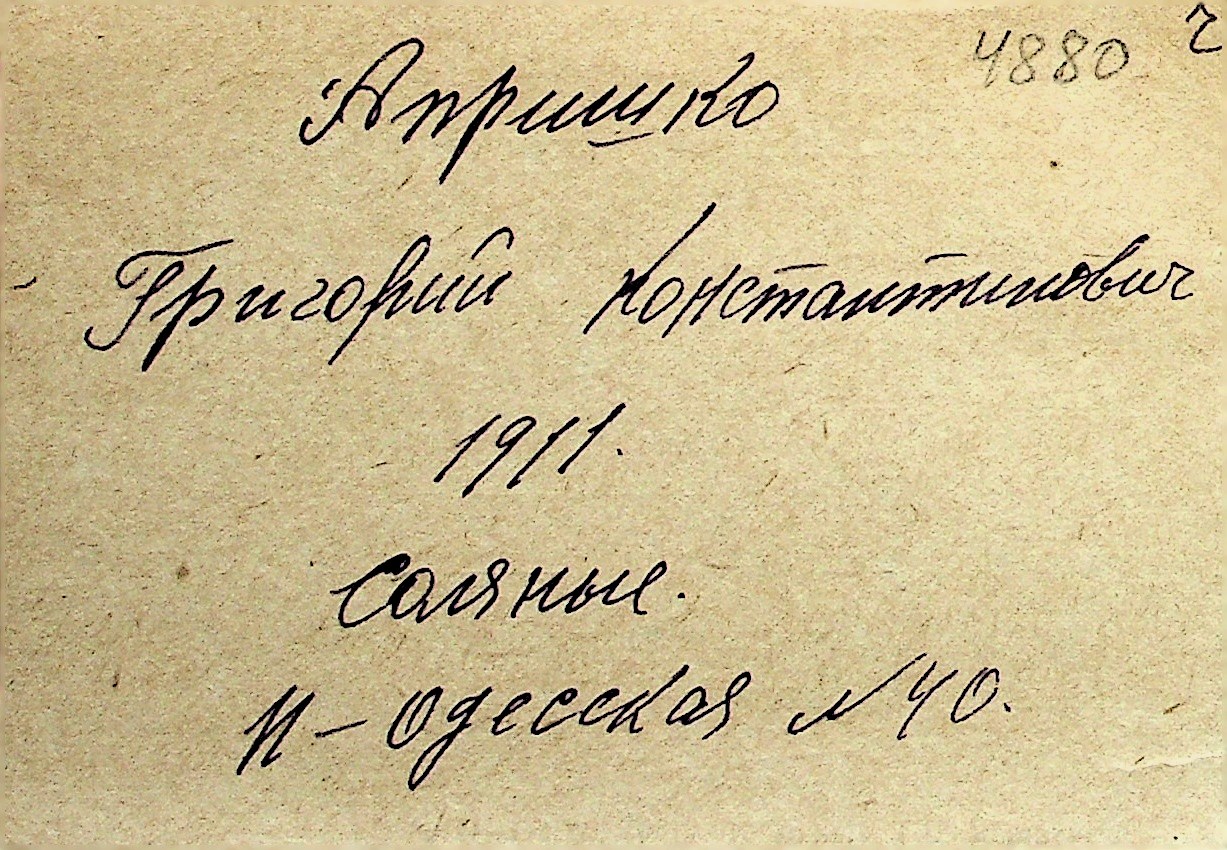 4880 ч
Апришко
Григорий Константинович
1911.
Соляные.
II - Одесская №40.